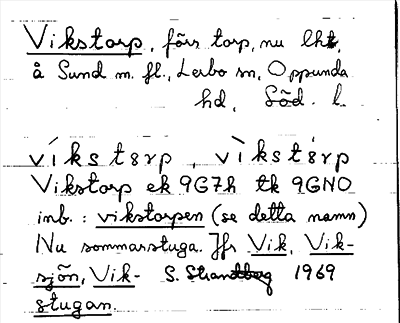 Vikstorp, förs torp, nu lht,
å Sund m. fl., Lerbo sn, Oppunda
hd, Söd. l.
víkstɞrp, vìkstɞ́rp
Vikstorp ek 9G7h tk 9GNO
inb.: vikstorpen (se detta namn)
Nu sommarstuga. Jfr Vik, Vik-
sjön, Vik- S. Strandberg 1969
stugan.